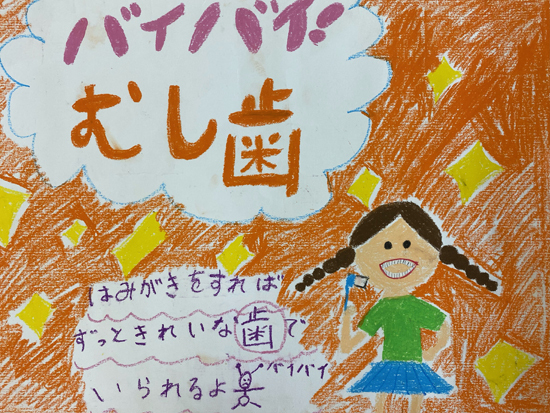 バイバイ!
むし歯
はみがきをすれば
ずっときれいな歯で
いられるよ バイバイ